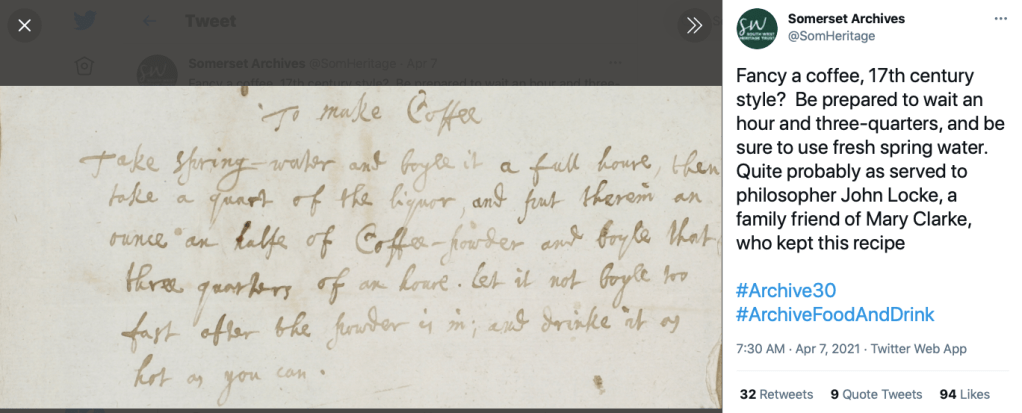 Tweet
Somerset Archives @SomHeritage · Apr 7
Fancy a coffee, 17th century style? Be prepared to wait an hour and three-
To make Coffee
Take spring-water and boyle it a full houre, then
take a quart of the liquor, and put therein an
ounce an halfe of Coffee-powder and boyle that
three quarters of an houre. Let it not boyle too
fast after the powder is in; and drinke it as
hot as you can.
SW
SOUTH WEST
HERITAGE TRUST
Somerset Archives
@SomHeritage
Fancy a coffee, 17th century
style? Be prepared to wait an
hour and three-quarters, and be
sure to use fresh spring water.
Quite probably as served to
philosopher John Locke, a
family friend of Mary Clarke,
who kept this recipe
#Archive30
#ArchiveFoodAndDrink
7:30 AM · Apr 7, 2021 · Twitter Web App
32 Retweets 9 Quote Tweets 94 Likes